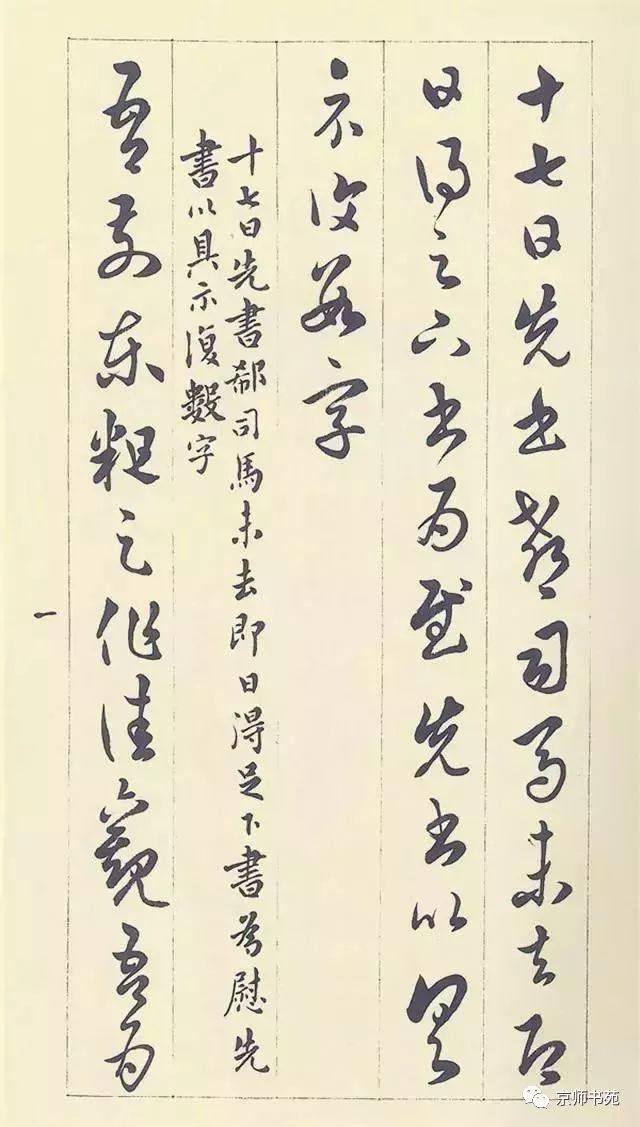 十七日先書郗司馬未去即
日得足下書為慰先書以具
示復數字
十七日先書郗司馬未去即日得足下書為慰先
書以具示復數字
吾前東粗足作佳觀吾為
一
京师书苑